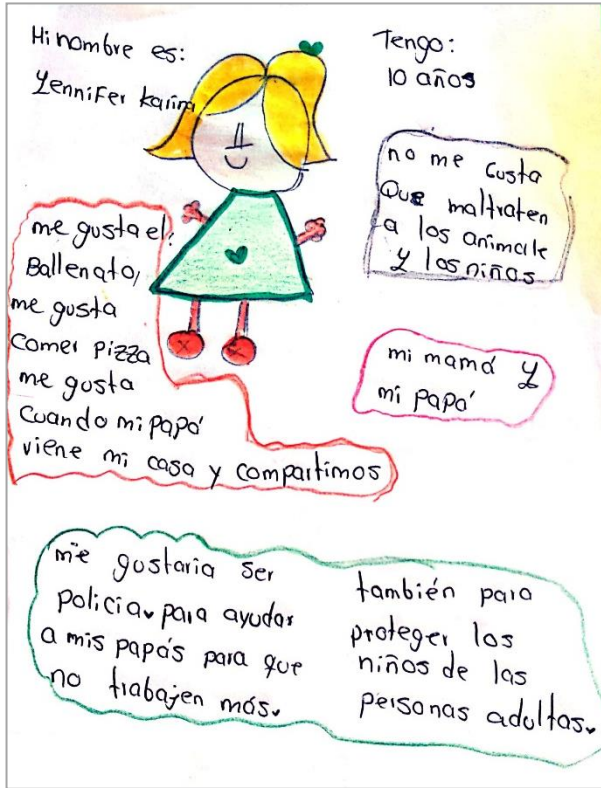 Mi nombre es:
Yennifer karina
Tengo:
10 años
no me Custa
Que maltraten
a los animale
y las niñas
me gusta el:
Ballenato,
me gusta
comer pizza
me gusta
Cuando mi papá
viene mi casa y compartimos
mi mamá y
mi papá
me gustaria ser
policia para ayudar
a mis papás para que
no trabajen más.
también para
proteger los
niños de las
personas adultas.